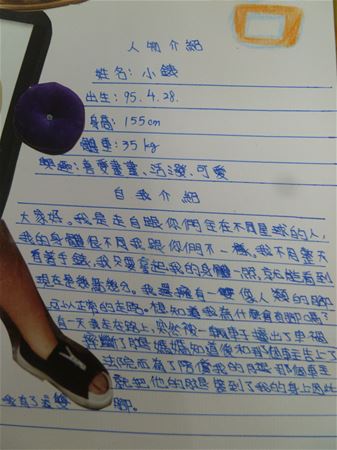 人物介紹
姓名：小錶
出生：95.4.28.
身高：155cm
體重：35kg
興趣：喜愛畫畫、活潑、可愛
自我介紹
大家好。我是走自跟你們是在不同星球的人，
我的身體很不同我跟你們不一樣。我不用整天
看著手錶，我只要拿起我的身體一照就能看到
現在是幾點幾分。我還擁有一雙像人類的腳
可以正常的走路。想知道我為什麼會有腳嗎？
有一天我走在路上，突然被一輛車子撞出了車禍
撞斷了腿媽媽知道後和那個車主上了
法院而為了賠償我的腿那個車主
就把他的腿裝到了我的身上因此
我有了這雙 腳。